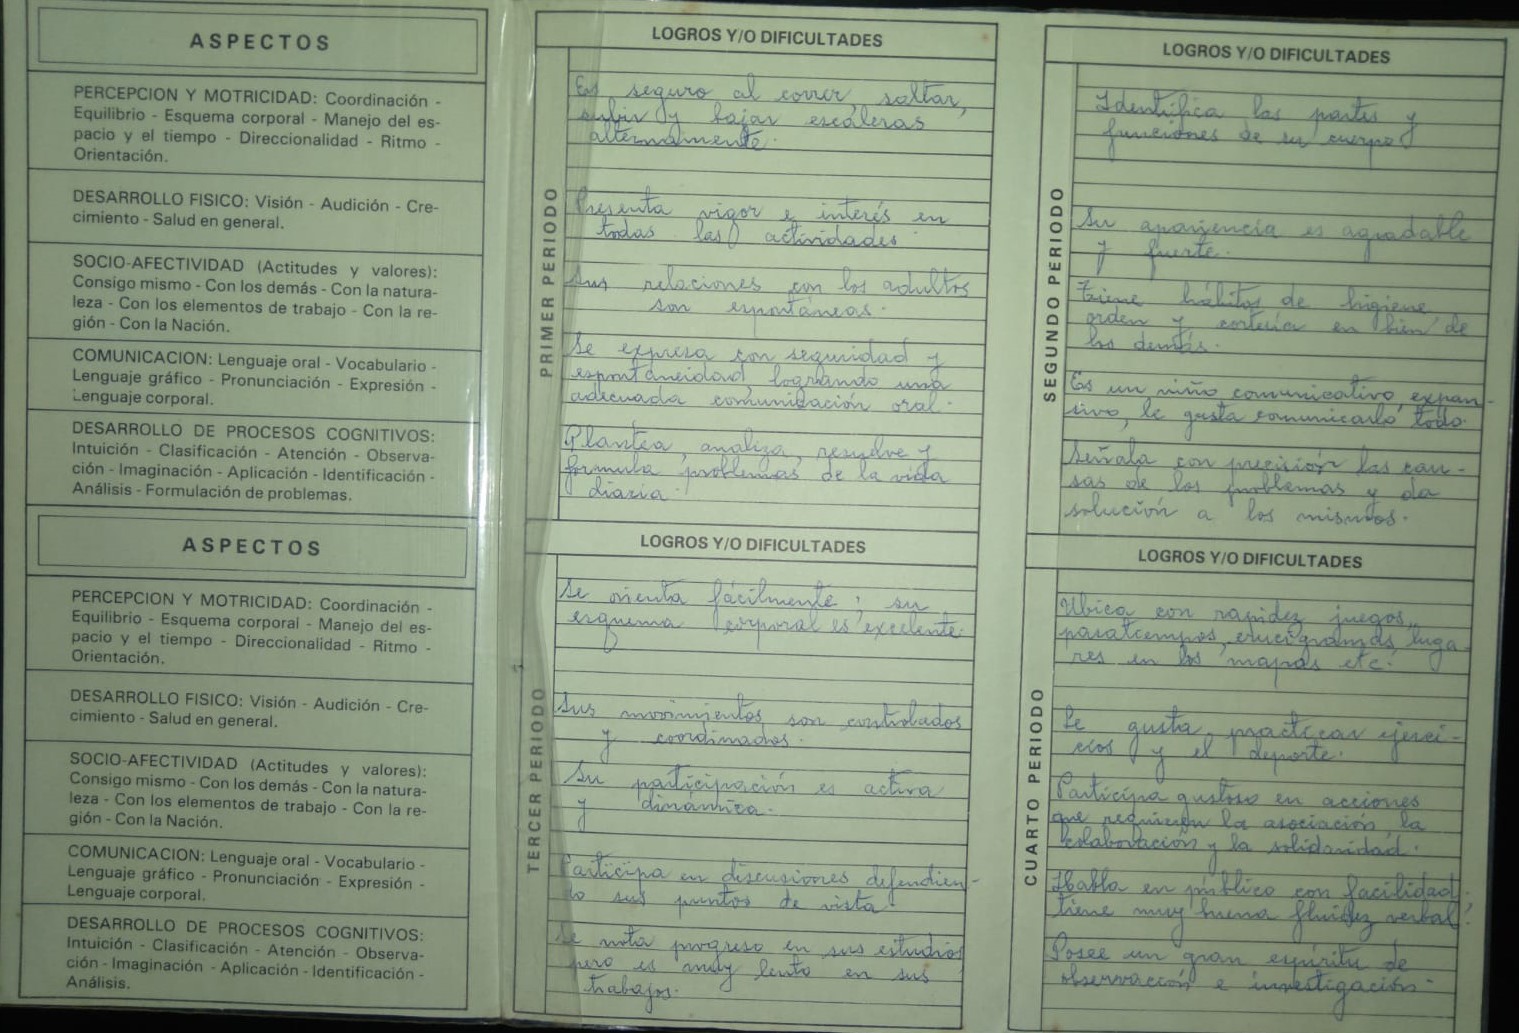 ASPECTOS
PERCEPCION Y MOTRICIDAD: Coordinación -
Equilibrio - Esquema corporal - Manejo del es-
pacio y el tiempo - Direccionalidad - Ritmo -
Orientación.
DESARROLLO FISICO: Visión - Audición - Cre-
cimiento - Salud en general.
SOCIO-AFECTIVIDAD (Actitudes y valores):
Consigo mismo - Con los demás - Con la natura-
leza - Con los elementos de trabajo - Con la re-
gión - Con la Nación.
COMUNICACION: Lenguaje oral - Vocabulario -
Lenguaje gráfico - Pronunciación - Expresión -
Lenguaje corporal.
DESARROLLO DE PROCESOS COGNITIVOS:
Intuición - Clasificación - Atención - Observa-
ción - Imaginación - Aplicación - Identificación -
Análisis - Formulación de problemas.
ASPECTOS
PERCEPCION Y MOTRICIDAD: Coordinación -
Equilibrio - Esquema corporal - Manejo del es-
pacio y el tiempo - Direccionalidad - Ritmo -
Orientación.
DESARROLLO FISICO: Visión - Audición - Cre-
cimiento - Salud en general.
SOCIO-AFECTIVIDAD (Actitudes y valores):
Consigo mismo - Con los demás - Con la natura-
leza - Con los elementos de trabajo - Con la re-
gión - Con la Nación.
COMUNICACION: Lenguaje oral - Vocabulario -
Lenguaje gráfico - Pronunciación - Expresión -
Lenguaje corporal.
DESARROLLO DE PROCESOS COGNITIVOS:
Intuición - Clasificación - Atención - Observa-
ción - Imaginación - Aplicación - Identificación -
Análisis.
LOGROS Y/O DIFICULTADES
PRIMER PERIODO
Es seguro al correr, saltar,
subir y bajar escaleras
alternamente.
Presenta vigor e interés en
todas las actividades.
Sus relaciones con los adultos
son espontáneas.
Se expresa con seguridad y
espontaneidad, logrando una
adecuada comunicación oral.
Plantea, analiza, resuelve y
formula problemas de la vida
diaria.
LOGROS Y/O DIFICULTADES
TERCER PERIODO
Se orienta fácilmente; su
esquema corporal es excelente.
Sus movimientos son controlados
y coordinados.
Su participación es activa
y dinámica.
Participa en discusiones defendien-
do sus puntos de vista.
Se nota progreso en sus estudios
pero es muy lento en sus
trabajos.
LOGROS Y/O DIFICULTADES
SEGUNDO PERIODO
Identifica las partes y
funciones de su cuerpo.
Su apariencia es agradable
y fuerte.
Tiene hábitos de higiene,
orden y cortesía en bien de
los demás.
Es un niño comunicativo, expan-
sivo, le gusta comunicarlo todo.
Señala con precisión las cau-
sas de los problemas y da
solución a los mismos.
LOGROS Y/O DIFICULTADES
CUARTO PERIODO
Ubica con rapidez juegos,
pasatiempos, crucigramas, luga-
res en los mapas etc.
Le gusta practicar ejerci-
cios y el deporte.
Participa gustoso en acciones
que requieren la asociación, la
colaboración y la solidaridad.
Habla en público con facilidad,
tiene muy buena fluidez verbal.
Posee un gran espíritu de
observación e investigación.